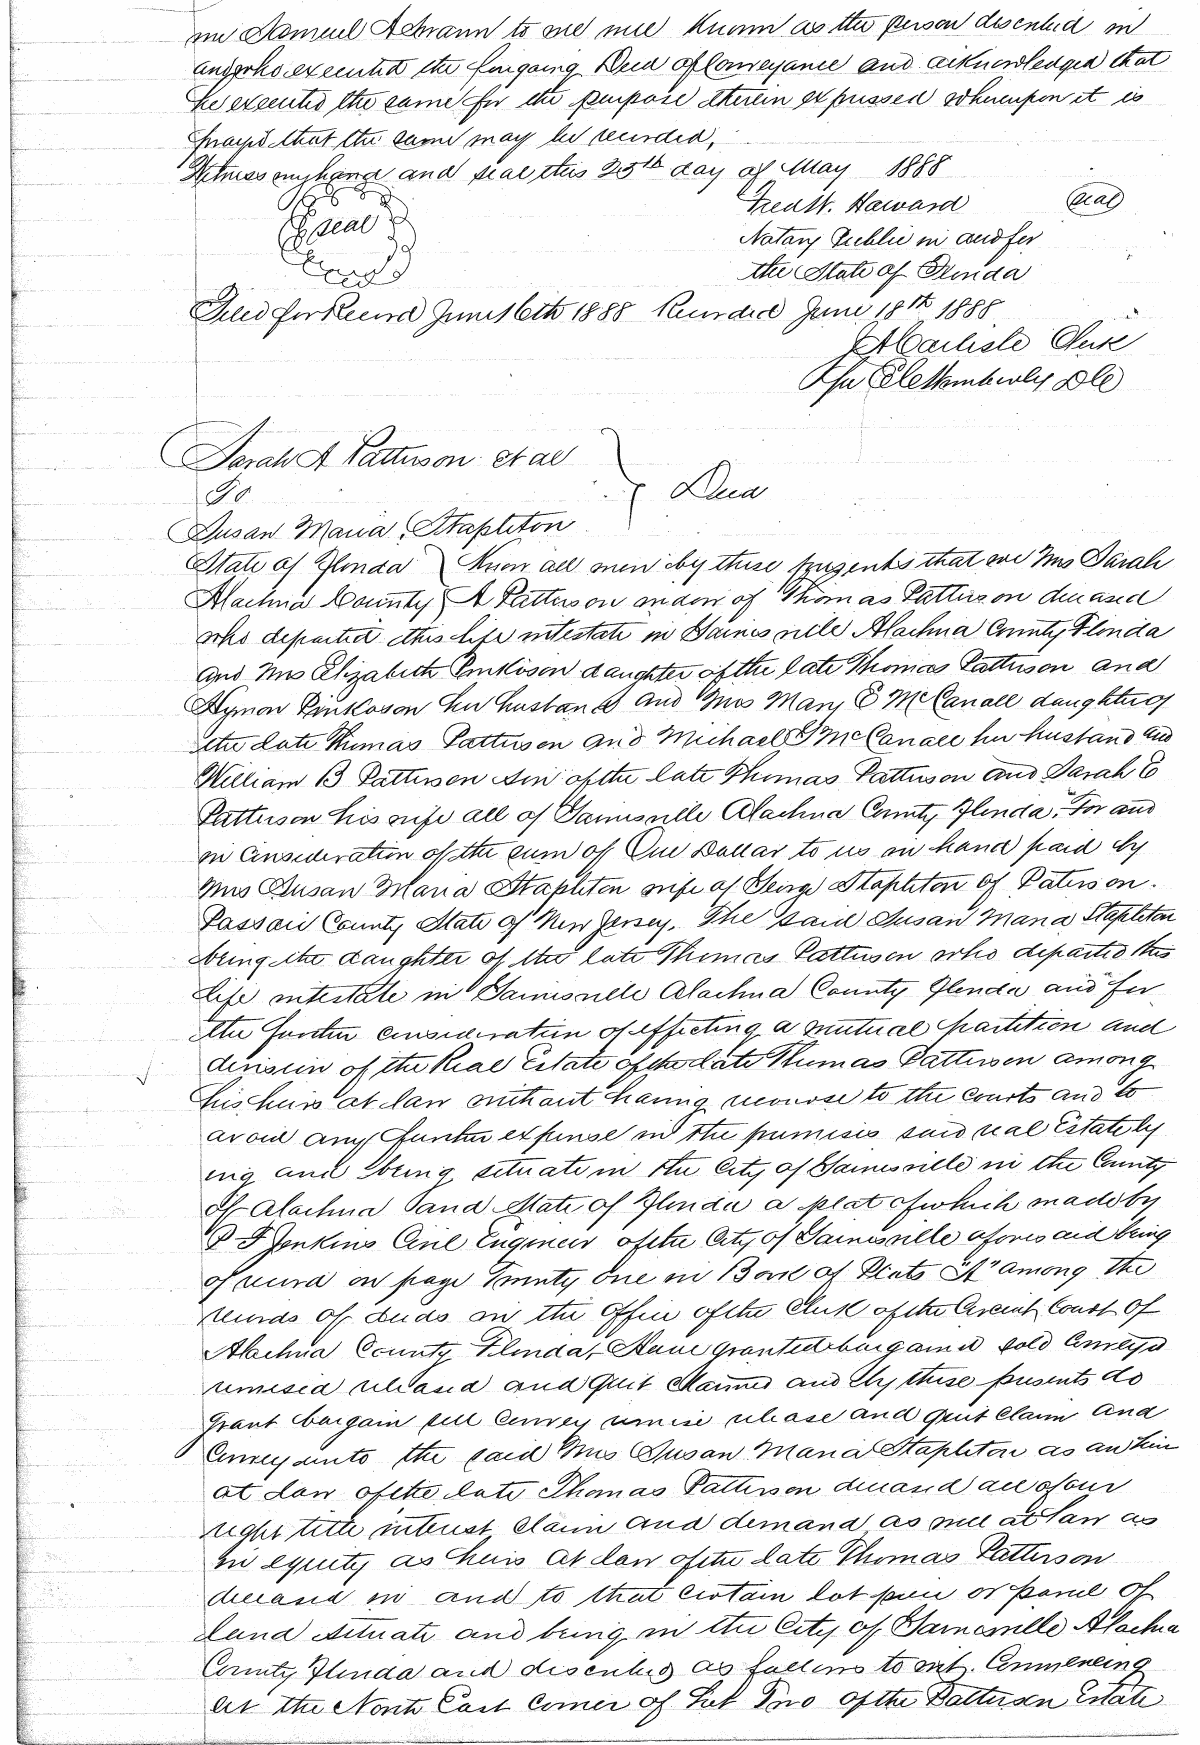 me Samuel Achrann to me well Known as the person described in
and who executed the forgoing Deed of Conveyance and acknowledged that
he executed the same for the purpose therein expressed whereupon it is
prayed that the same may be recorded,
Witness my hand and seal this 25th day of May 1888
seal
Fred W. Haward seal
Notary Public in and for
the State of Florida
Filed for Record June 16th 1888 Recorded June 18th 1888
Carlisle Clerk
Per Wimberly DC
Sarah A Patterson et al
To
Deed
Susan Maria Stapleton
State of Florida Know all men by these presents that we Mrs Sarah
Alachua County A Patterson widow of Thomas Patterson deceased
who departed this life intestate in Gainesville Alachua County Florida
and Mrs Elizabeth Pinkoson daughter of the late Thomas Patterson and
Hymon Pinkoson her husband and Mrs Mary E McCanall daughter of
the late Thomas Patterson and Michael J McCanall her husband and
William B Patterson son of the late Thomas Patterson and Sarah E
Patterson his wife all of Gainesville Alachua County Florida, For and
in consideration of the sum of One Dollar to us in hand paid by
Mrs Susan Maria Stapleton wife of George Stapleton of Paterson.
Passaic County State of New Jersey. The said Susan Maria Stapleton
being the daughter of the late Thomas Patterson who departed this
life intestate in Gainesville Alachua County Florida and for
the further consideration of effecting a mutual partition and
division of the Real Estate of the late Thomas Patterson among
his heirs at law without having recourse to the courts and to
avoid any further expense in the premises said real Estate ly
ing and being situate in the City of Gainesville in the County
of Alachua and State of Florida a plat of which made by
P F Jenkins Civil Engineer of the City of Gainesville aforesaid being
of record on page Twenty one in Book of Plats "A" among the
records of deeds in the Office of the Clerk of the Circuit Court of
Alachua County Florida, Have granted bargained sold conveyed
remised released and quit Claimed and by these presents do
grant bargain sell convey remise release and quit claim and
Convey unto the said Mrs Susan Maria Stapleton as an heir
at law of the late Thomas Patterson deceased all of our
right title interest claim and demand as well at law as
in equity as heirs at law of the late Thomas Patterson
deceased in and to that certain lot piece or parcel of
land situate and being in the City of Gainesville Alachua
County Florida and described as follows to wit. Commencing
at the North East Corner of Lot Two of the Patterson Estate